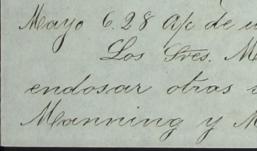 Mayo 6. 28 a/c de u
Los Sres. M
endosar otras
Manning y M